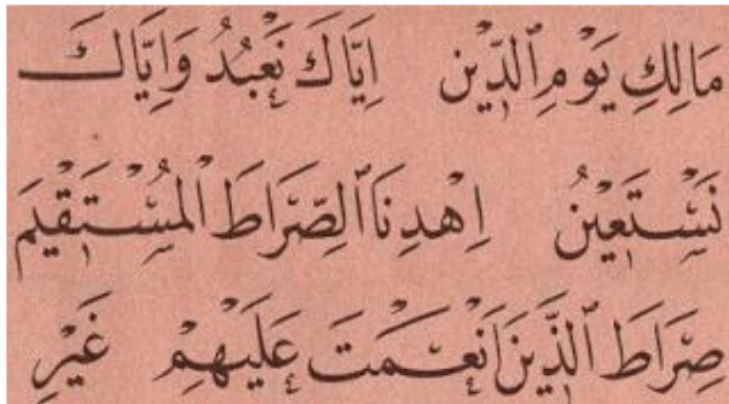 مَالِكِ يَوْمِ ٱلدِّين اِيَّاكَ نَعْبُدُ وَاِيَّاكَ
نَسْتَعِيْنُ اِهْدِنَا ٱلصِّرَاطَ ٱلْمُسْتَقِيْمَ
صِرَاطَ ٱلَّذِينَ اَنْعَمْتَ عَلَيْهِمْ غَيْرِ